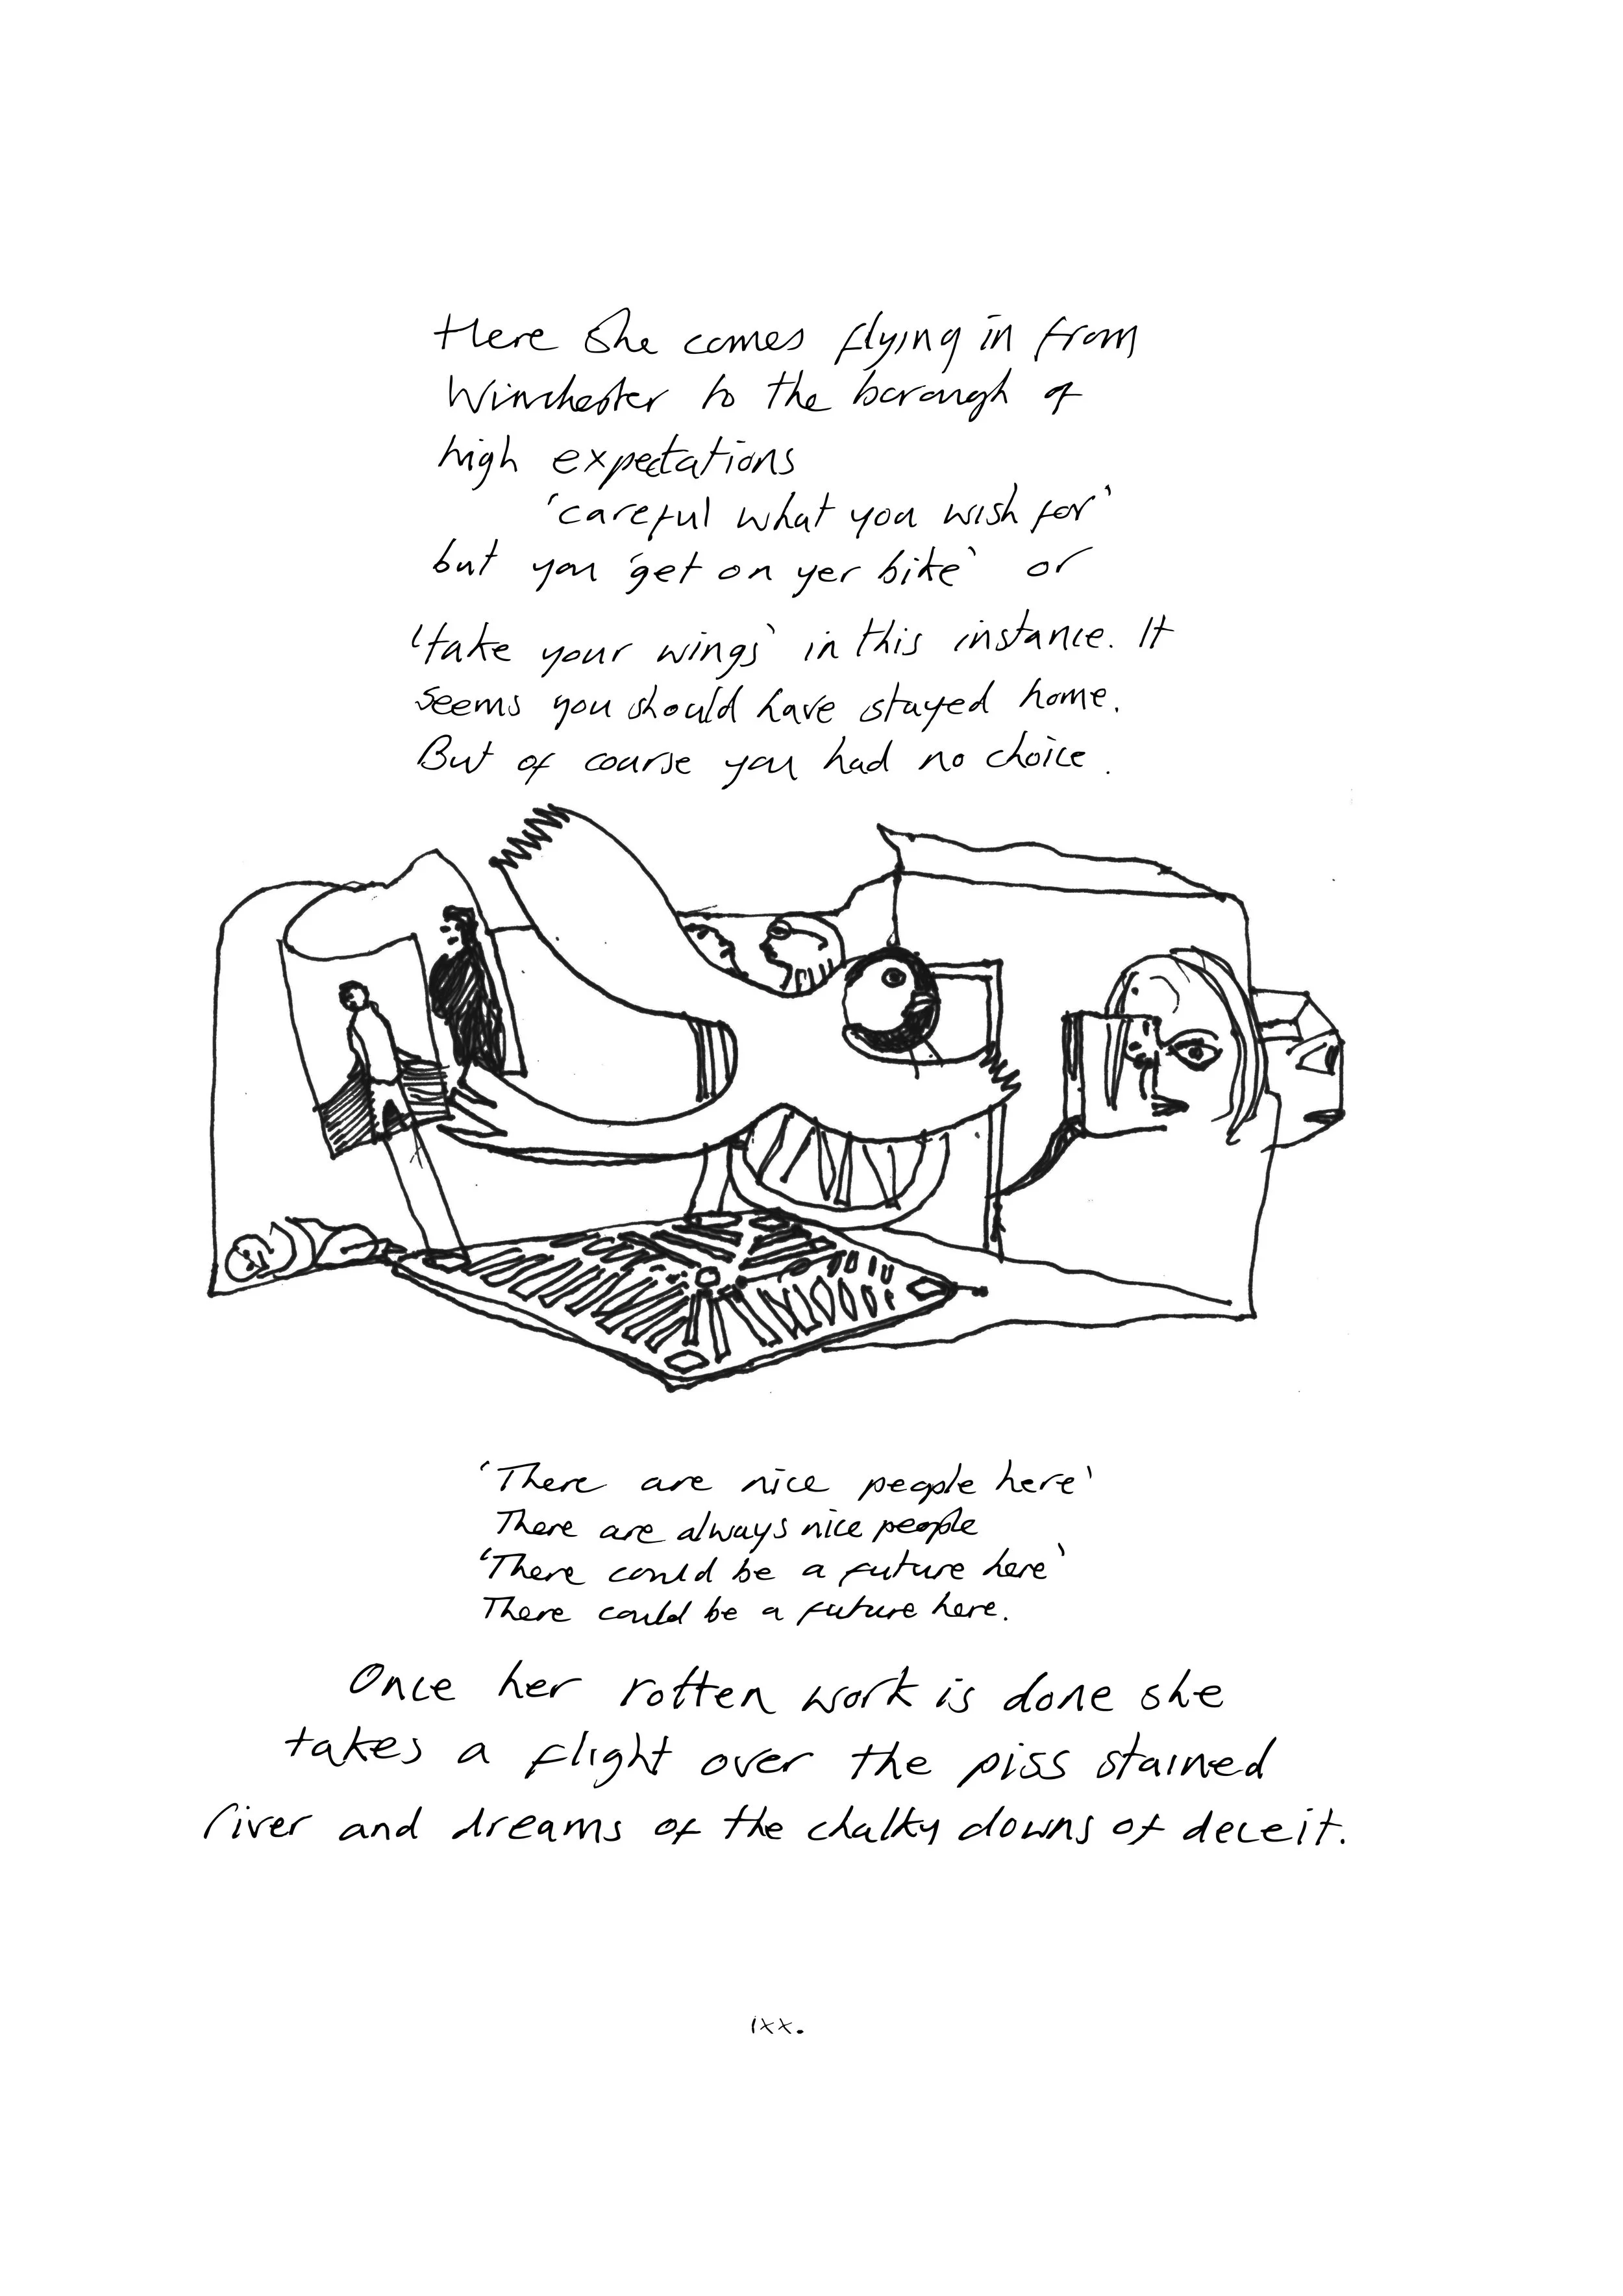 Here She comes flying in from
Winchester to the borough of
high expectations
'careful what you wish for'
but you 'get on yer bike' or
'take your wings' in this instance. It
seems you should have stayed home.
But of course you had no choice.
'There are nice people here'
There are always nice people
'There could be a future here'
There could be a future here.
Once her rotten work is done she
takes a flight over the piss stained
river and dreams of the chalky downs of deceit.
ixx.